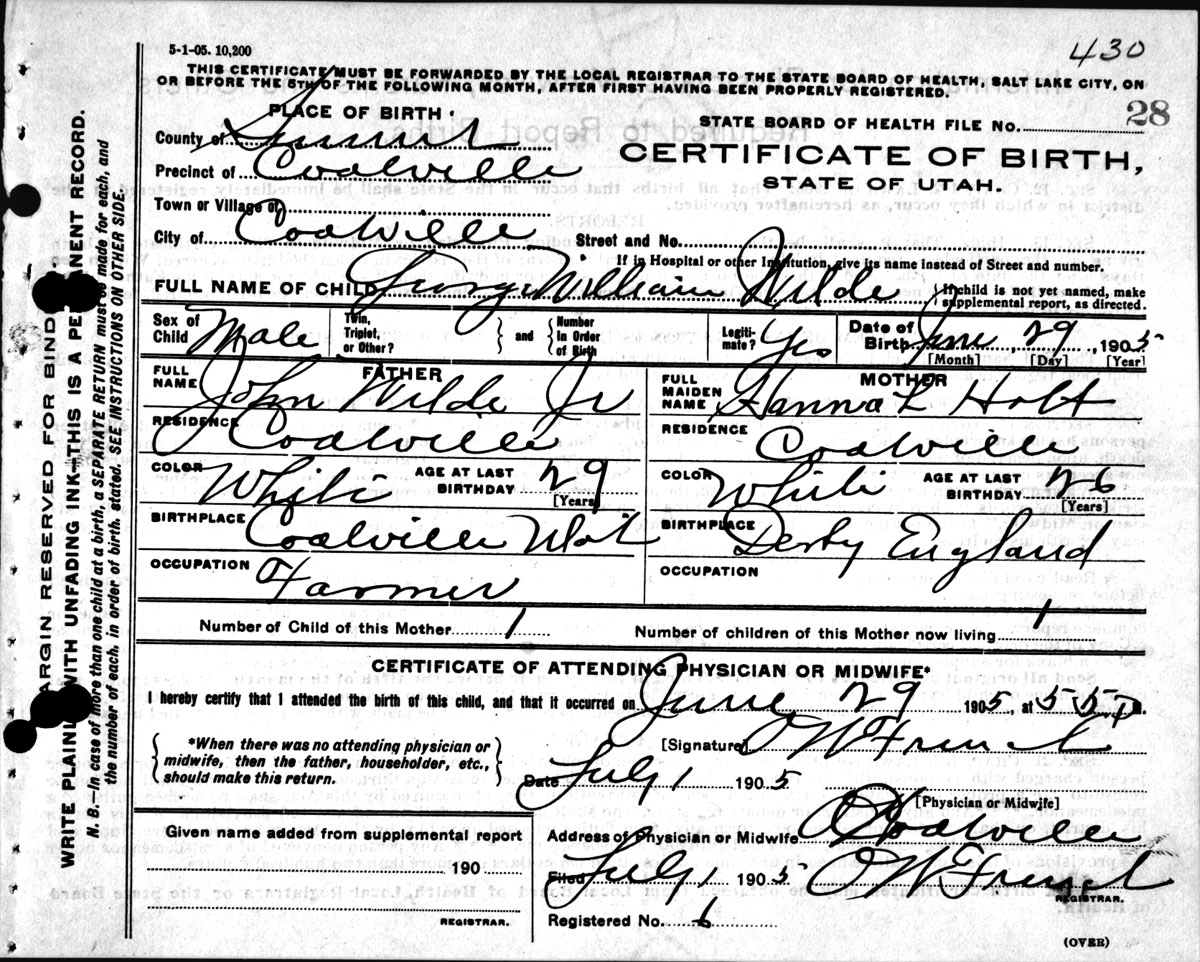 5-1-05. 10,200
430
THIS CERTIFICATE MUST BE FORWARDED BY THE LOCAL REGISTRAR TO THE STATE BOARD OF HEALTH, SALT LAKE CITY, ON
OR BEFORE THE 5TH OF THE FOLLOWING MONTH, AFTER FIRST HAVING BEEN PROPERLY REGISTERED.
PLACE OF BIRTH.
STATE BOARD OF HEALTH FILE No. 28
County of Summit
CERTIFICATE OF BIRTH,
Precinct of Coalville
STATE OF UTAH.
Town or Village of
City of Coalville Street and No.
If in Hospital or other Institution, give its name instead of Street and number.
FULL NAME OF CHILD George William Wilde { If child is not yet named, make supplemental report, as directed.
Sex of Child Male Twin, Triplet, or Other? } and { Number in Order of Birth Legiti-mate? Yes Date of Birth June 29, 1905
[Month] [Day] [Year]
FATHER MOTHER
FULL NAME John Wilde Jr FULL MAIDEN NAME Hanna L Holt
RESIDENCE Coalville RESIDENCE Coalville
COLOR White AGE AT LAST BIRTHDAY 29 [Years] COLOR White AGE AT LAST BIRTHDAY 26 [Years]
BIRTHPLACE Coalville Utah BIRTHPLACE Derby England
OCCUPATION Farmer OCCUPATION
Number of Child of this Mother 1 Number of children of this Mother now living 1
CERTIFICATE OF ATTENDING PHYSICIAN OR MIDWIFE*
I hereby certify that I attended the birth of this child, and that it occurred on June 29 1905, at 5 55 P m.
{ *When there was no attending physician or midwife, then the father, householder, etc., should make this return. }
[Signature]
Date July 1 1905
[Physician or Midwife]
Given name added from supplemental report
Address of Physician or Midwife Coalville
190
Filed July 1 1905
REGISTRAR. REGISTRAR.
Registered No. 6
(OVER)
MARGIN RESERVED FOR BINDING
WRITE PLAINLY WITH UNFADING INK—THIS IS A PERMANENT RECORD.
N. B.—In case of more than one child at a birth, a SEPARATE RETURN must be made for each, and
the number of each, in order of birth, stated. SEE INSTRUCTIONS ON OTHER SIDE.